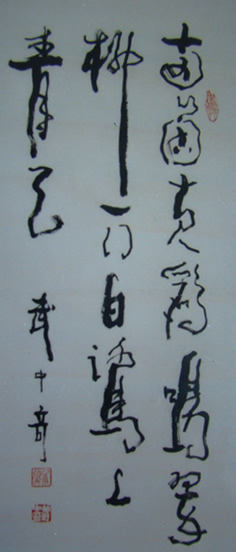 两个黄鹂鸣翠
柳一行白鹭上
青天
武中奇